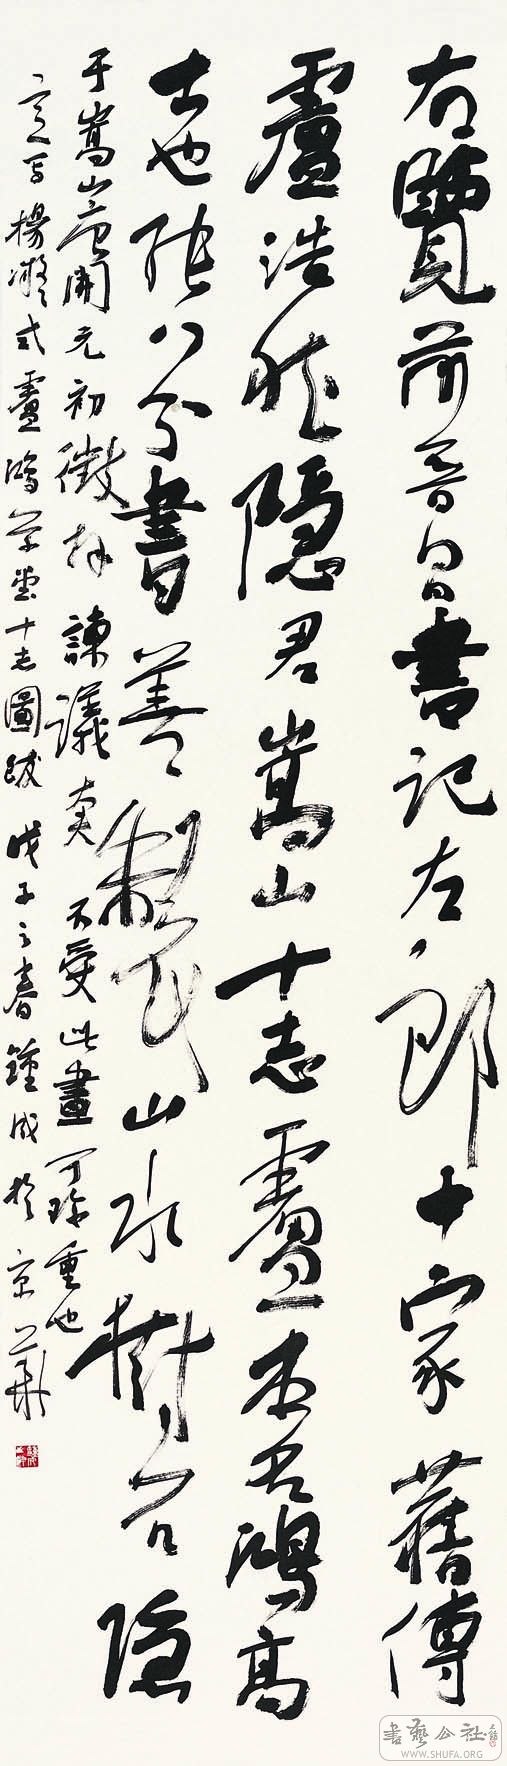 右覽前晉昌書記左郎中家舊傳
盧浩然隱君嵩山十志盧本名鴻高
士也能八分書善製山水樹石隱
于嵩山唐開元初徵拜諫議大夫不受此畫可珍重也
寫楊凝式盧鴻草堂十志圖跋戊子之春鍾成於京華
書藝公社
WWW.SHUFA.ORG